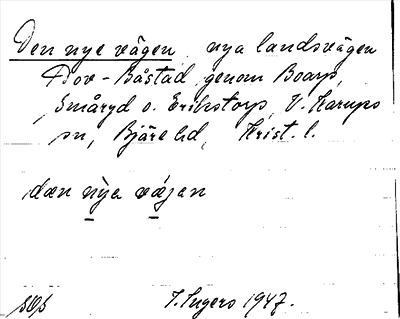 Den nye vägen, nya landsvägen
Dov - Båstad genom Boarp,
Smäryd o. Erikstorp, V. Karups
sn, Bjäre hd, Krist. l.
dæn nỳa vágen
sOp I. Ingers 1947.